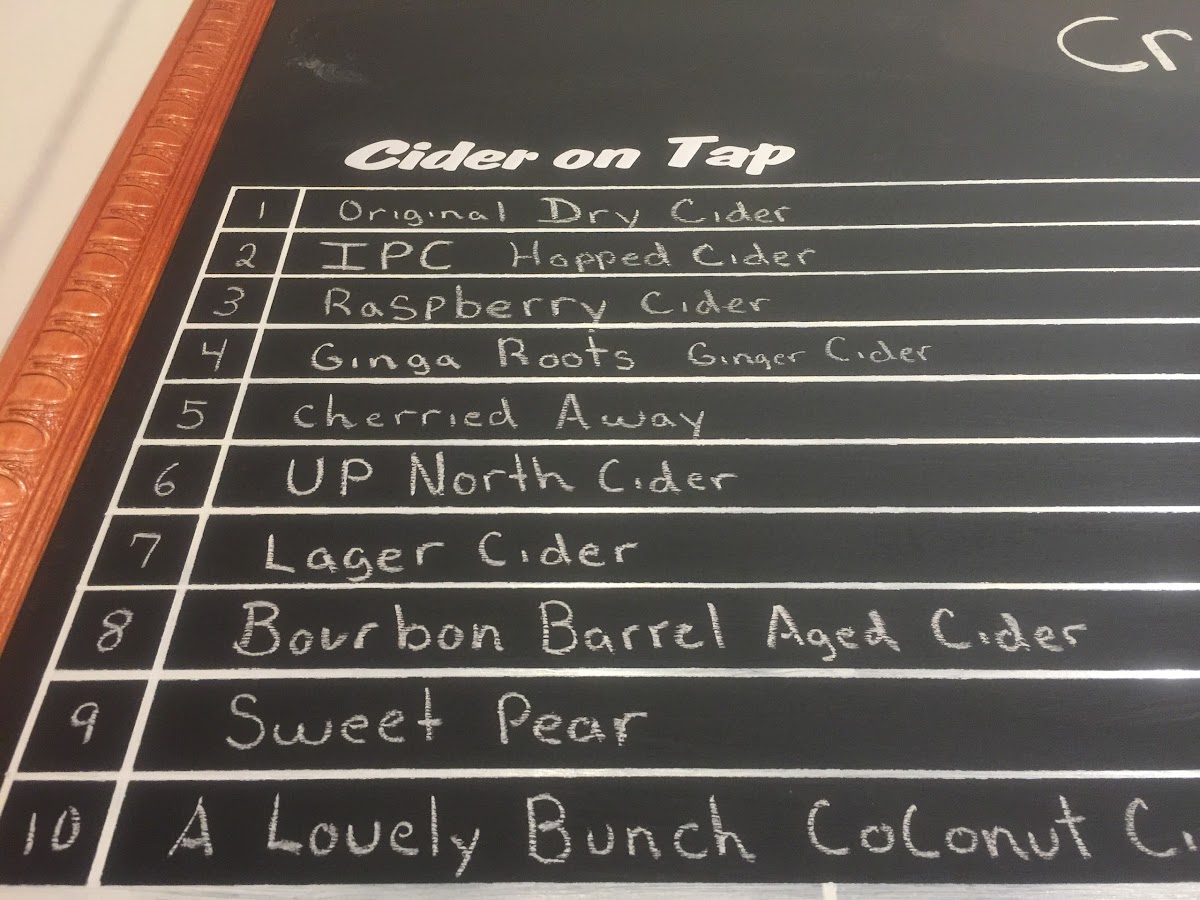 Cr
Cider on Tap
1 Original Dry Cider
2 IPC Hopped Cider
3 Raspberry Cider
4 Ginga Roots Ginger Cider
5 Cherried Away
6 UP North Cider
7 Lager Cider
8 Bourbon Barrel Aged Cider
9 Sweet Pear
10 A Lovely Bunch Coconut Ci